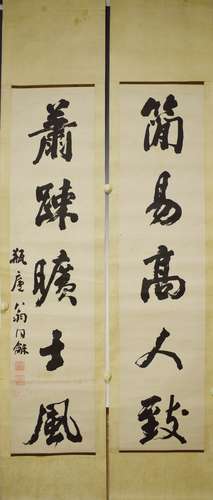 簡易高人致
蕭疎曠士風
瓶廬翁同龢